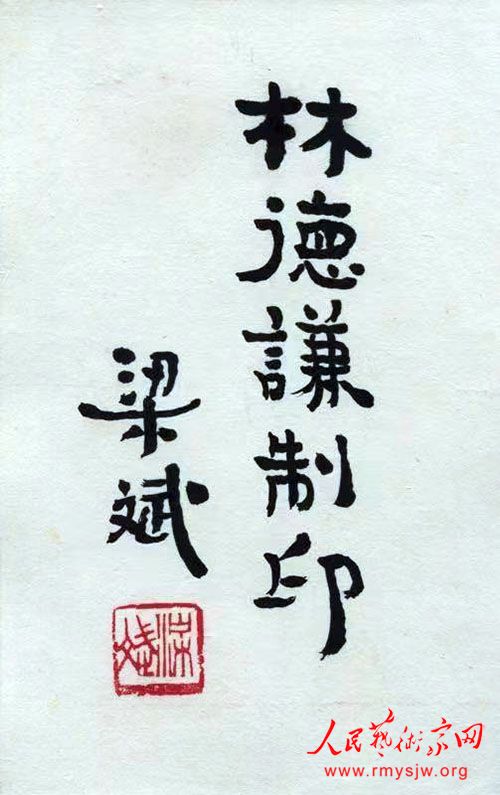 林德謙制印
梁斌
梁斌
人民藝術家网
www.rmysjw.org